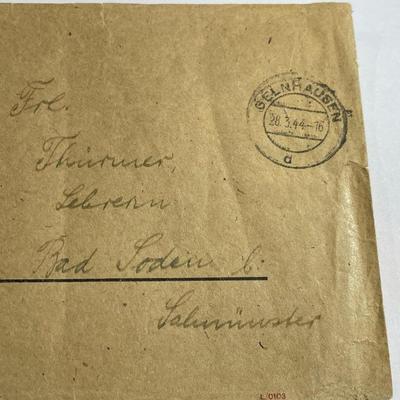 GELNHAUSEN
28.3.44.-16
a
Frl.
Thürmer,
Lehrerin
Bad Soden b.
Salmünster
L/0103